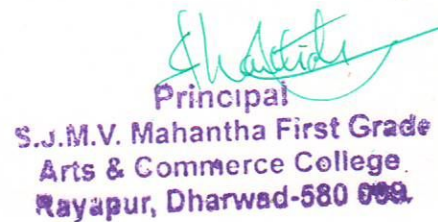 Principal
S.J.M.V. Mahantha First Grade
Arts & Commerce College
Rayapur, Dharwad-580 009.